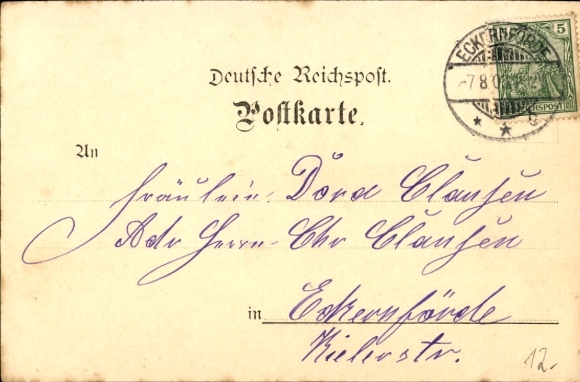 5
ECKERNFÖRDE
-7 8 0
REICHSPOST
Deutsche Reichspost.
Postkarte.
An
Fräulein Dora Clausen
Adr Herrn Chr Clausen
in Eckernförde
Kielerstr.
12.